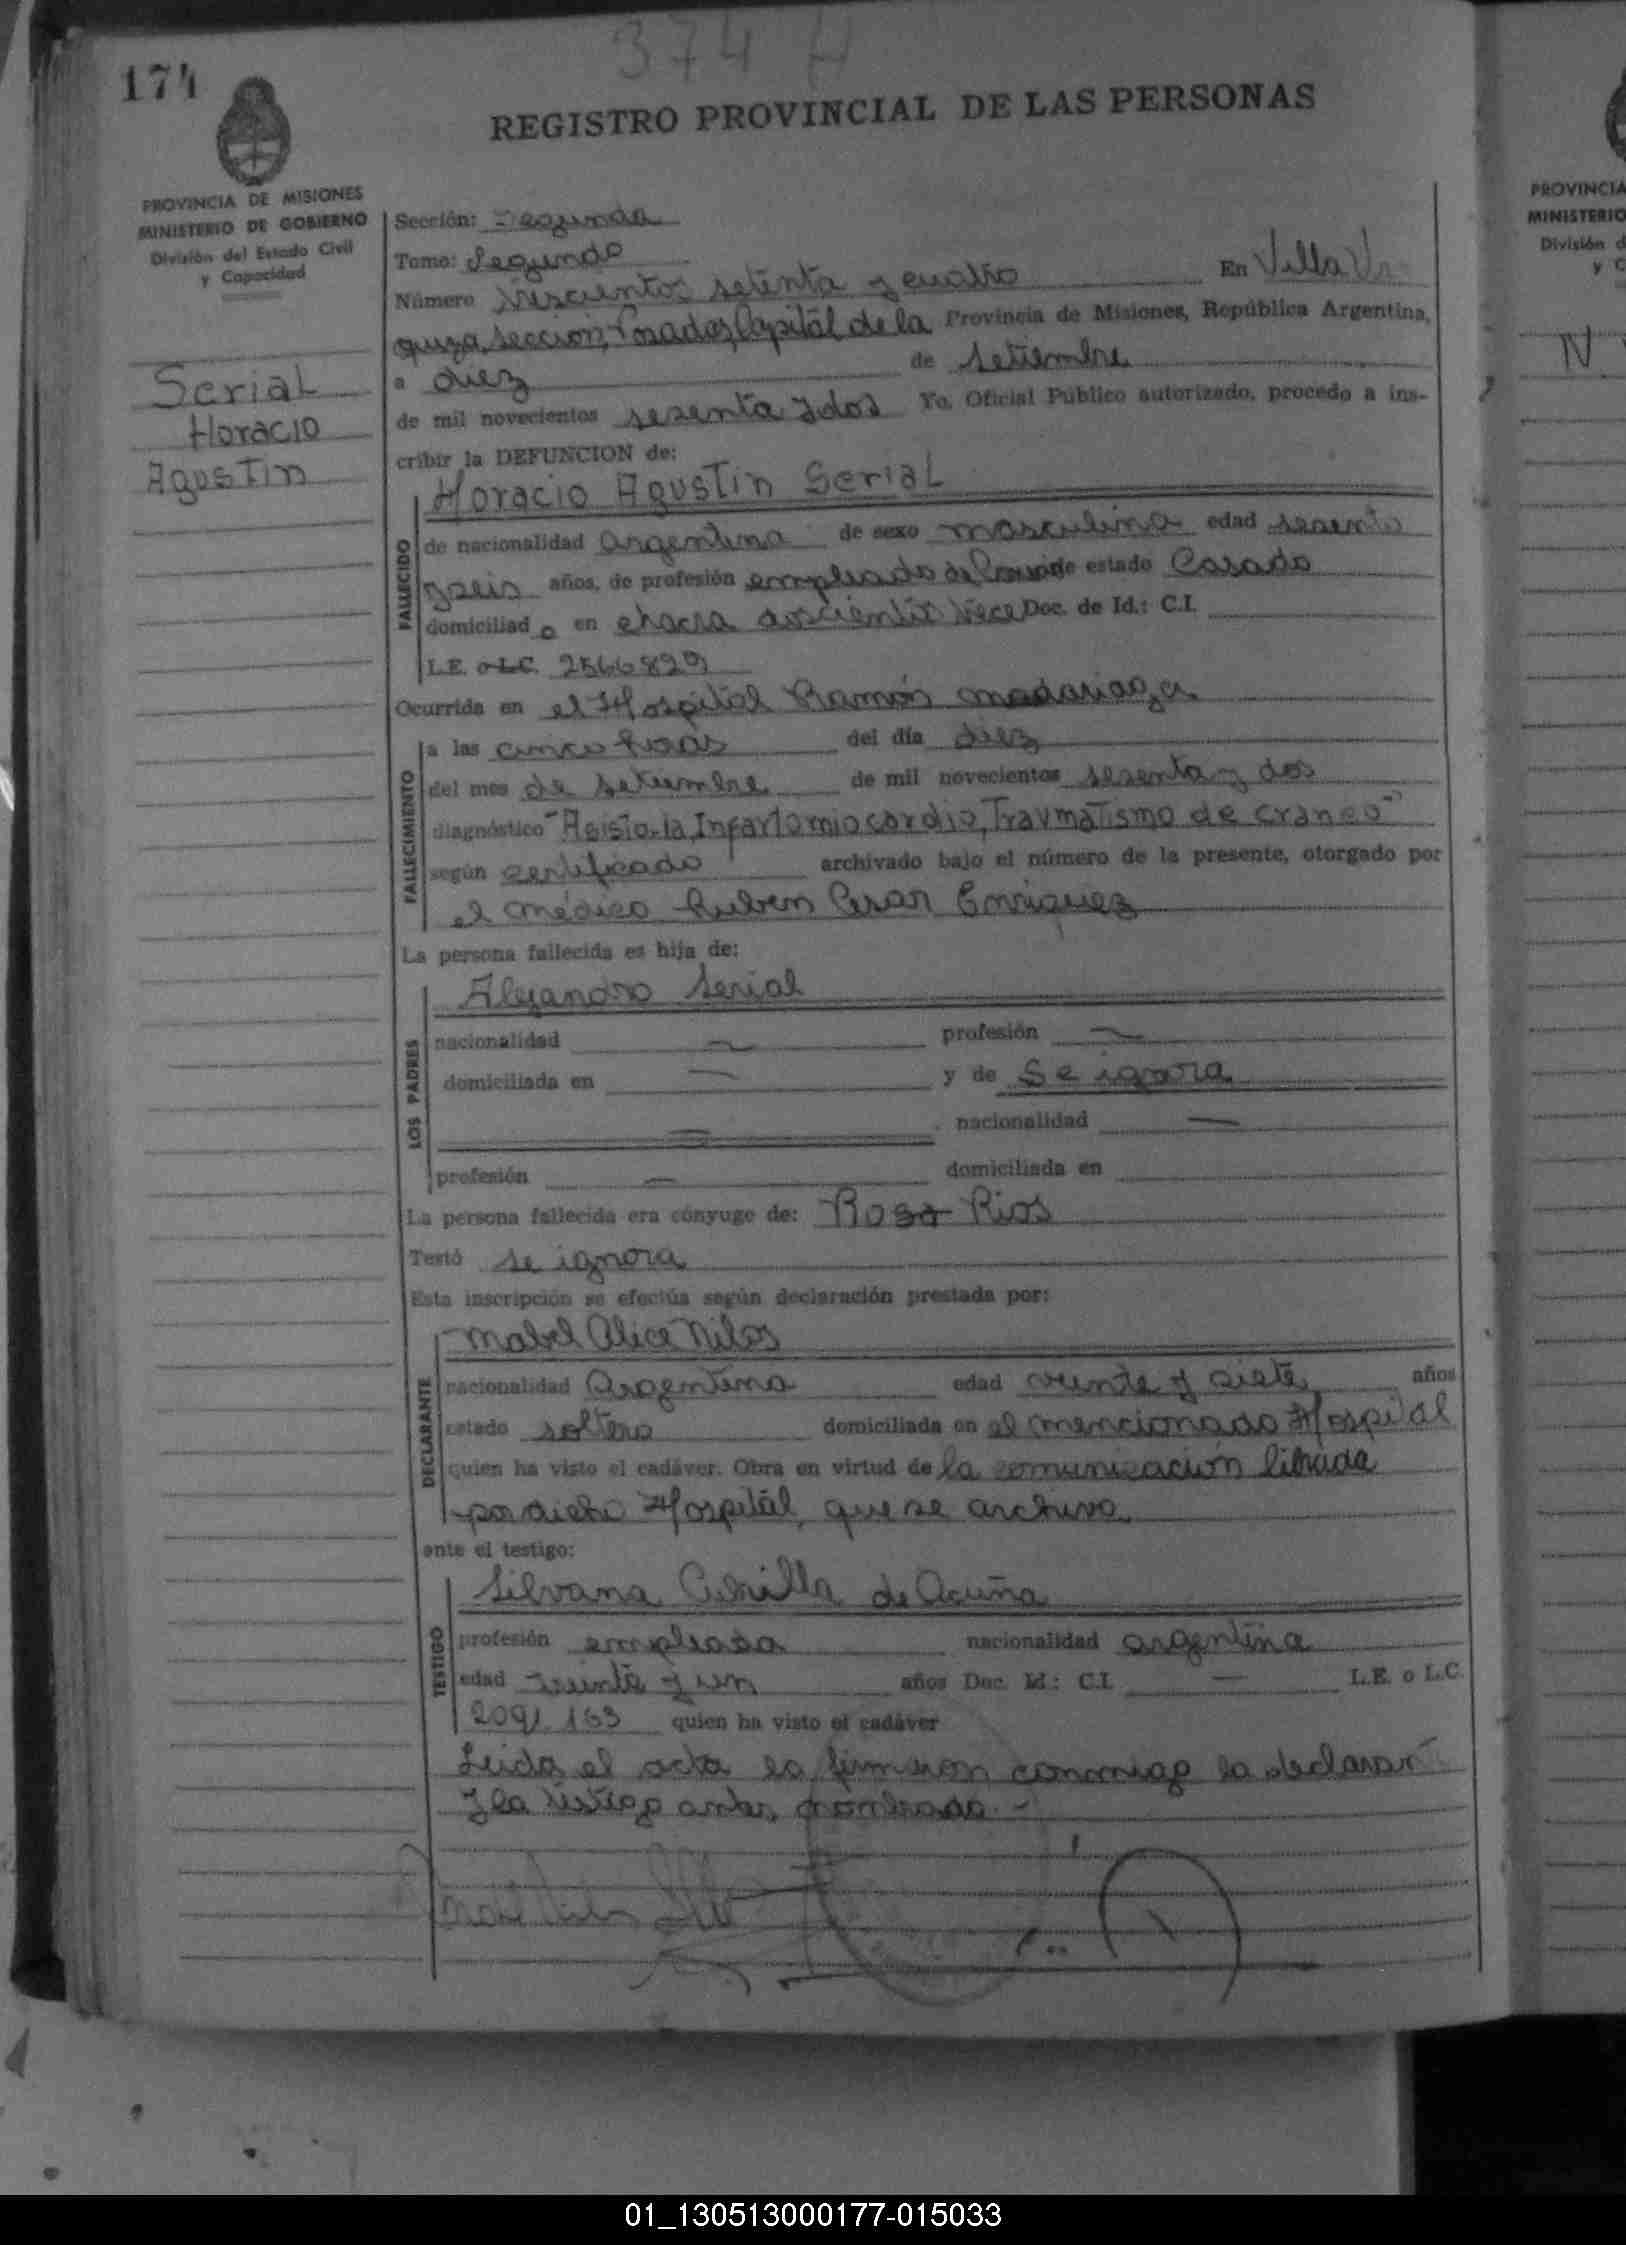 374 H
174
REGISTRO PROVINCIAL DE LAS PERSONAS
PROVINCIA DE MISIONES
MINISTERIO DE GOBIERNO
División del Estado Civil
y Capacidad
Serial
Horacio
Agustin
Sección: Segunda
Tomo: Segundo
Número trescientos setenta y cuatro En Villa Ur
quiza, sección, Posadas, Capital de la Provincia de Misiones, República Argentina,
a diez de setiembre
de mil novecientos sesenta y dos Yo, Oficial Público autorizado, procedo a ins-
cribir la DEFUNCION de:
Horacio Agustin Serial
FALLECIDO
de nacionalidad argentina de sexo masculina edad sesenta
y seis años, de profesión empleado de estado Casado
domiciliad o en chacra doscientos trece Doc. de Id.: C.I.
L.E. o L.C. 2566829
Ocurrida en el Hospital Ramón Madariaga
FALLECIMIENTO
a las cinco horas del día diez
del mes de setiembre de mil novecientos sesenta y dos
diagnóstico "Asistolia, Infarto miocardio, Traumatismo de craneo"
según certificado archivado bajo el número de la presente, otorgado por
el médico Ruben Cesar Enriquez
La persona fallecida es hija de:
LOS PADRES
Alejandro Serial
nacionalidad — profesión —
domiciliada en — y de Se ignora
— nacionalidad —
profesión — domiciliada en
La persona fallecida era cónyuge de: Rosa Rios
Testó se ignora
Esta inscripción se efectúa según declaración prestada por:
DECLARANTE
Mabel Alice Nilos
nacionalidad Argentina edad veinte y siete años
estado soltera domiciliada en el mencionado Hospital
quien ha visto el cadáver. Obra en virtud de la comunicación librada
por dicho Hospital, que se archiva.
ante el testigo:
TESTIGO
Silvana de Acuña
profesión empleada nacionalidad argentina
edad treinta y un años Doc. Id.: C.I. — L.E. o L.C.
2091.163 quien ha visto el cadáver
Leida el acta la firmaron conmigo la declarant
y la testigo antes nombrada.-
PROVINCIA
MINISTERIO
División d
y C
N
01_130513000177-015033